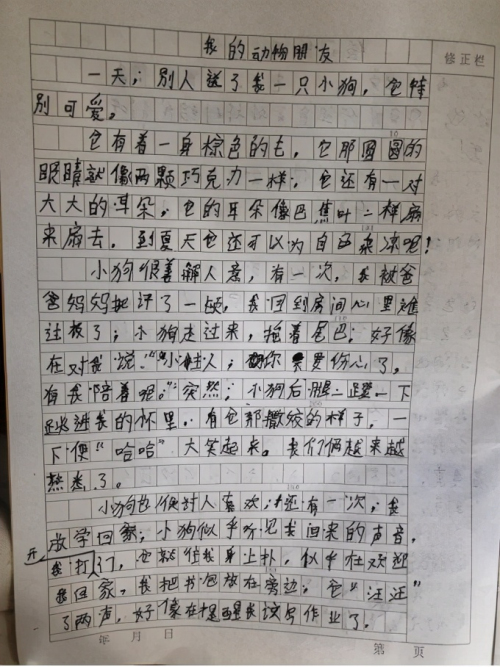 我的动物朋友
修正栏
一天，别人送了我一只小狗，它特
别可爱。
它有着一身棕色的毛，它那圆圆的
眼睛就像两颗巧克力一样，它还有一对
大大的耳朵，它的耳朵像巴蕉叶一样扇
来扇去。到夏天它还可以为自己乘凉呢！
小狗很善解人意，有一次，我被爸
爸妈妈批评了一顿，我回到房间心里难
过极了，小狗走过来，摇着尾巴，好像
在对我说：“小主人，你不要伤心了，
有我陪着呢。”突然，小狗后脚一蹬一下
跳进我的怀里，看它那撒娇的样子，一
下便“哈哈”大笑起来。我们俩越来越
熟悉了。
小狗也很对人喜欢，还有一次，我
放学回家，小狗似乎听见我回来的声音，
开
我打门，它就往我身上扑，似乎在欢迎
我回家。我把书包放在旁边，它“汪汪”
了两声，好像在提醒我该写作业了。
年 月 日
第 页